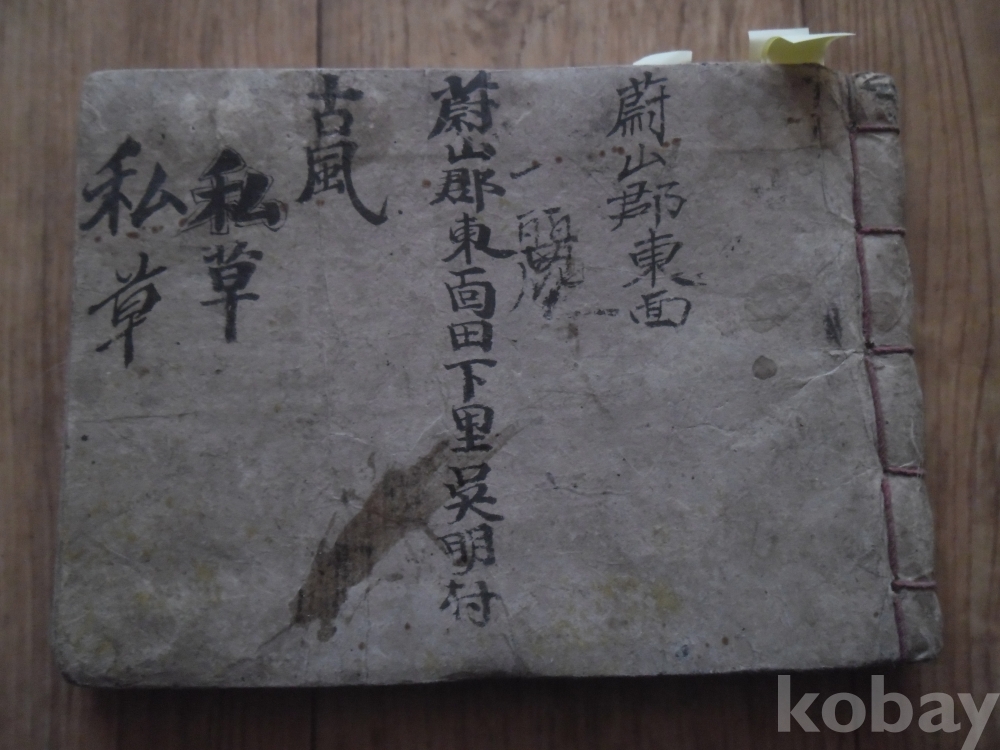 蔚山郡東面
蔚山郡東面田下里吳明村
古風
私草
私草
kobay